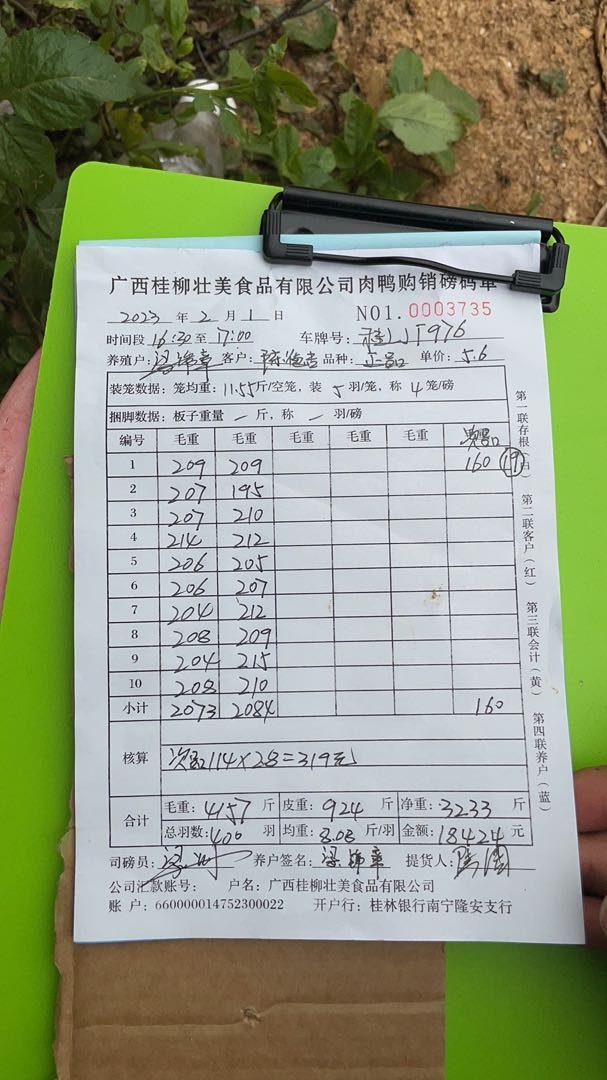 广西桂柳壮美食品有限公司肉鸭购销磅码单
2023 年 2 月 1 日 NO1.0003735
时间段 16:30 至 17:00 车牌号: 976
养殖户: 客户: 品种: 单价: 5.6
装笼数据: 笼均重: 11.55斤/空笼, 装 5 羽/笼, 称 4 笼/磅
捆脚数据: 板子重量 — 斤, 称 — 羽/磅
编号 毛重 毛重 毛重 毛重 毛重
1 209 209 160 19
2 207 195
3 207 210
4 214 212
5 206 205
6 206 207
7 204 212
8 208 209
9 204 215
10 208 210
小计 2073 2084 160
核算 114×2.8=319元
合计 毛重: 4157 斤 皮重: 924 斤 净重: 3233 斤
总羽数: 400 羽 均重: 8.08 斤/羽 金额: 18424 元
司磅员: 养户签名: 提货人:
公司汇款账号: 户名: 广西桂柳壮美食品有限公司
账 户: 660000014752300022 开户行: 桂林银行南宁隆安支行
第一联存根(白) 第二联客户(红) 第三联会计(黄) 第四联养户(蓝)